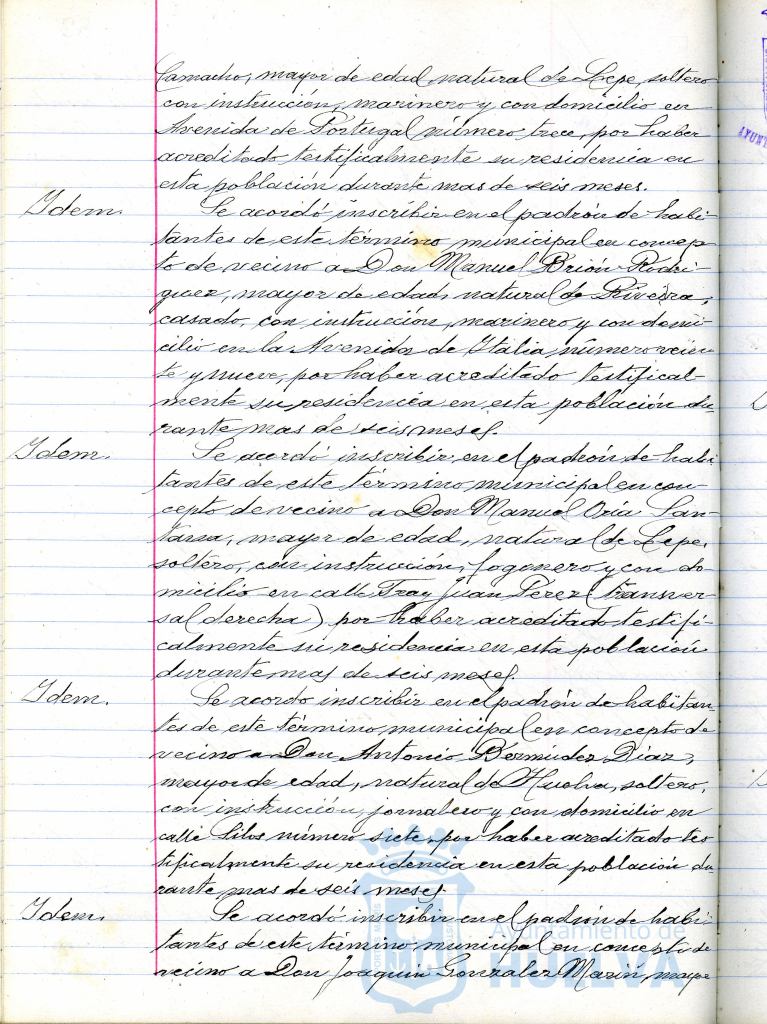 Camacho, mayor de edad, natural de Lepe, soltero
con instrucción, marinero y con domicilio en
Avenida de Portugal número trece, por haber
acreditado testificalmente su residencia en
esta población durante mas de seis meses.
Idem. Se acordó inscribir en el padrón de habi-
tantes de este término municipal en concep-
to de vecino a Don Manuel Brión Rodri-
guez, mayor de edad, natural de Riveira,
casado, con instrucción, marinero y con domi-
cilio en la Avenida de Italia, número vein-
te y nueve, por haber acreditado testifical-
mente su residencia en esta población du-
rante mas de seis meses.
Idem. Se acordó inscribir en el padrón de habi-
tantes de este término municipal en con-
cepto de vecino a Don Manuel Oria San-
tana, mayor de edad, natural de Lepe,
soltero, con instrucción, fogonero y con do-
micilio en calle Fray Juan Perez (transver-
sal derecha) por haber acreditado testifi-
calmente su residencia en esta población
durante mas de seis meses.
Idem. Se acordo inscribir en el padrón de habitan-
tes de este término municipal en concepto de
vecino a Don Antonio Bermúdez Díaz,
mayor de edad, natural de Huelva, soltero,
con instrucción, jornalero y con domicilio en
calle Silos número siete, por haber acreditado tes-
tificalmente su residencia en esta población du-
rante mas de seis meses.
Idem. Se acordó inscribir en el padrón de habi-
tantes de este término municipal en concepto de
vecino a Don Joaquin Gonzalez Marin, mayor
Ayuntamiento de
HUELVA